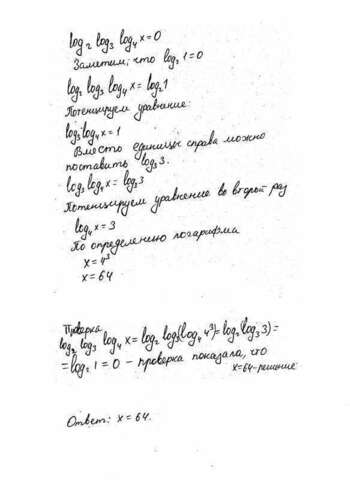 log₂ log₃ log₄ x = 0
Заметим, что log₂ 1 = 0
log₂ log₃ log₄ x = log₂ 1
Потенцируем уравнение:
log₃ log₄ x = 1
Вместо единицы справа можно
поставить log₃ 3.
log₃ log₄ x = log₃ 3
Потенцируем уравнение во второй раз
log₄ x = 3
По определению логарифма
x = 4³
x = 64
Проверка
log₂ log₃ log₄ x = log₂ log₃(log₄ 4³) = log₂(log₃ 3) =
= log₂ 1 = 0 – проверка показала, что
x = 64 - решение
Ответ: x = 64.